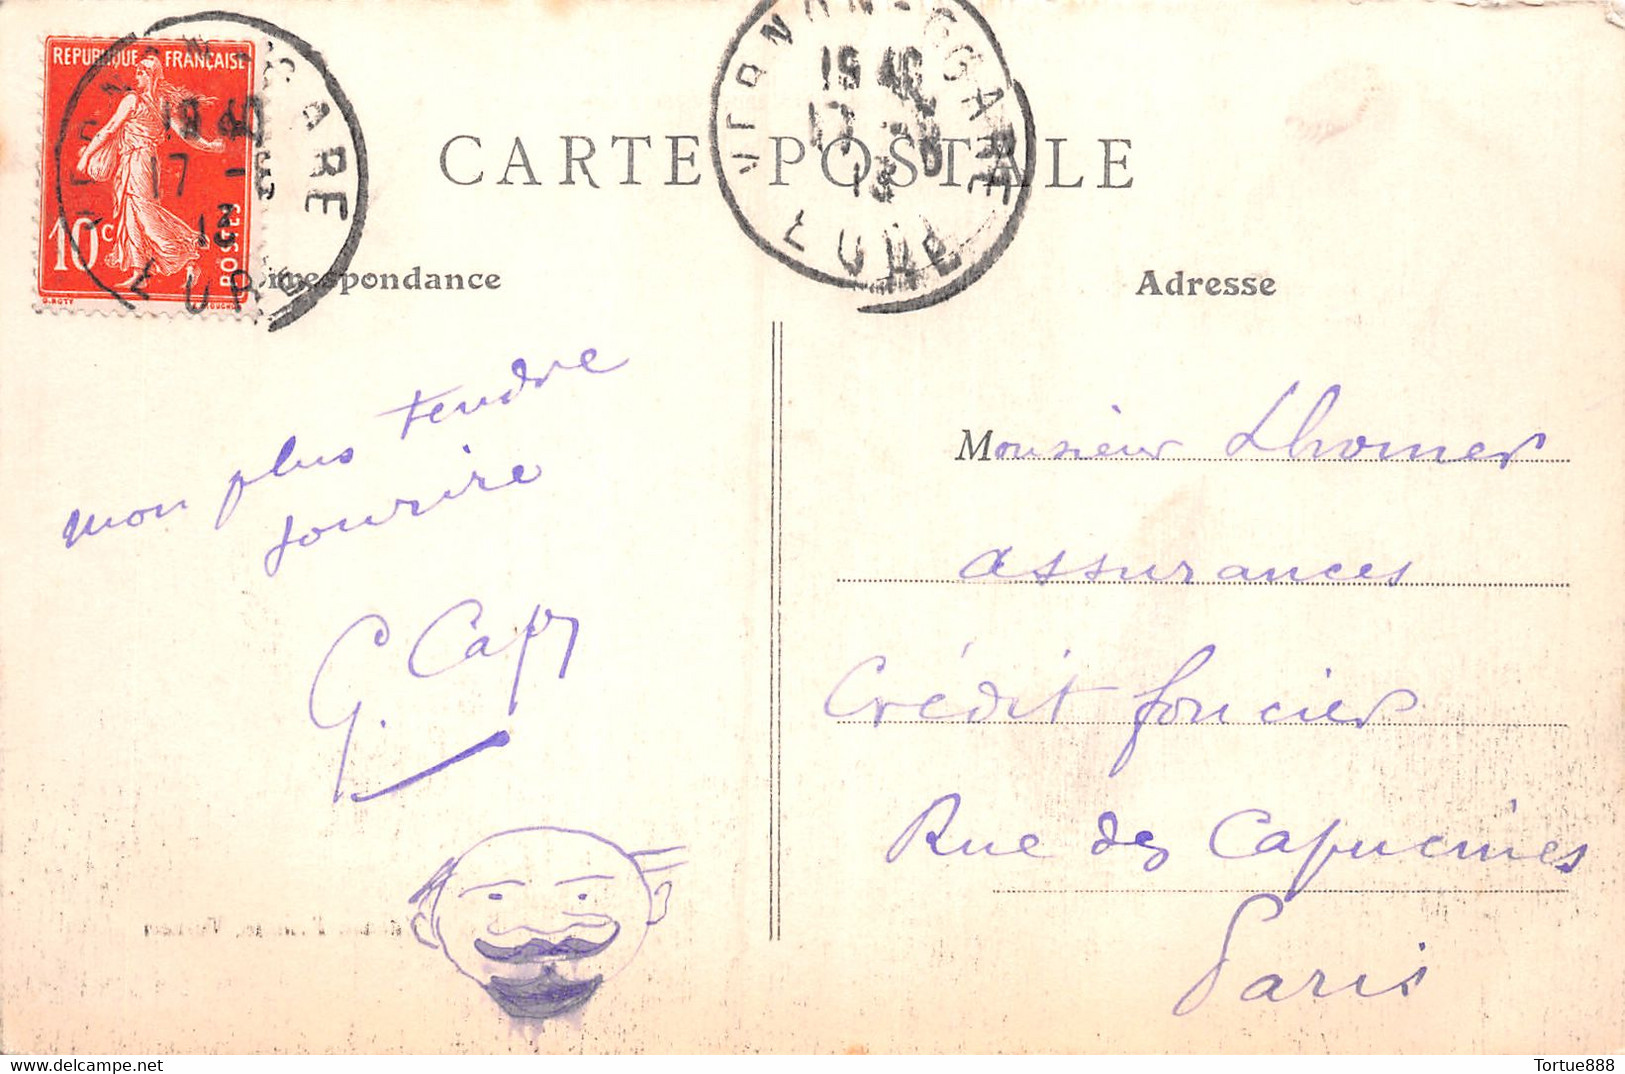 REPUBLIQUE FRANÇAISE
10c
POSTES
VERNON-GARE
19 40
17 -
13
EURE
VERNON-GARE
19 40
17
13
EURE
CARTE POSTALE
Correspondance
Adresse
mon plus tendre
sourire
G. Cap
Monsieur Lhomer
assurances
Crédit foncier
Rue des Capucines
Paris
Tortue888